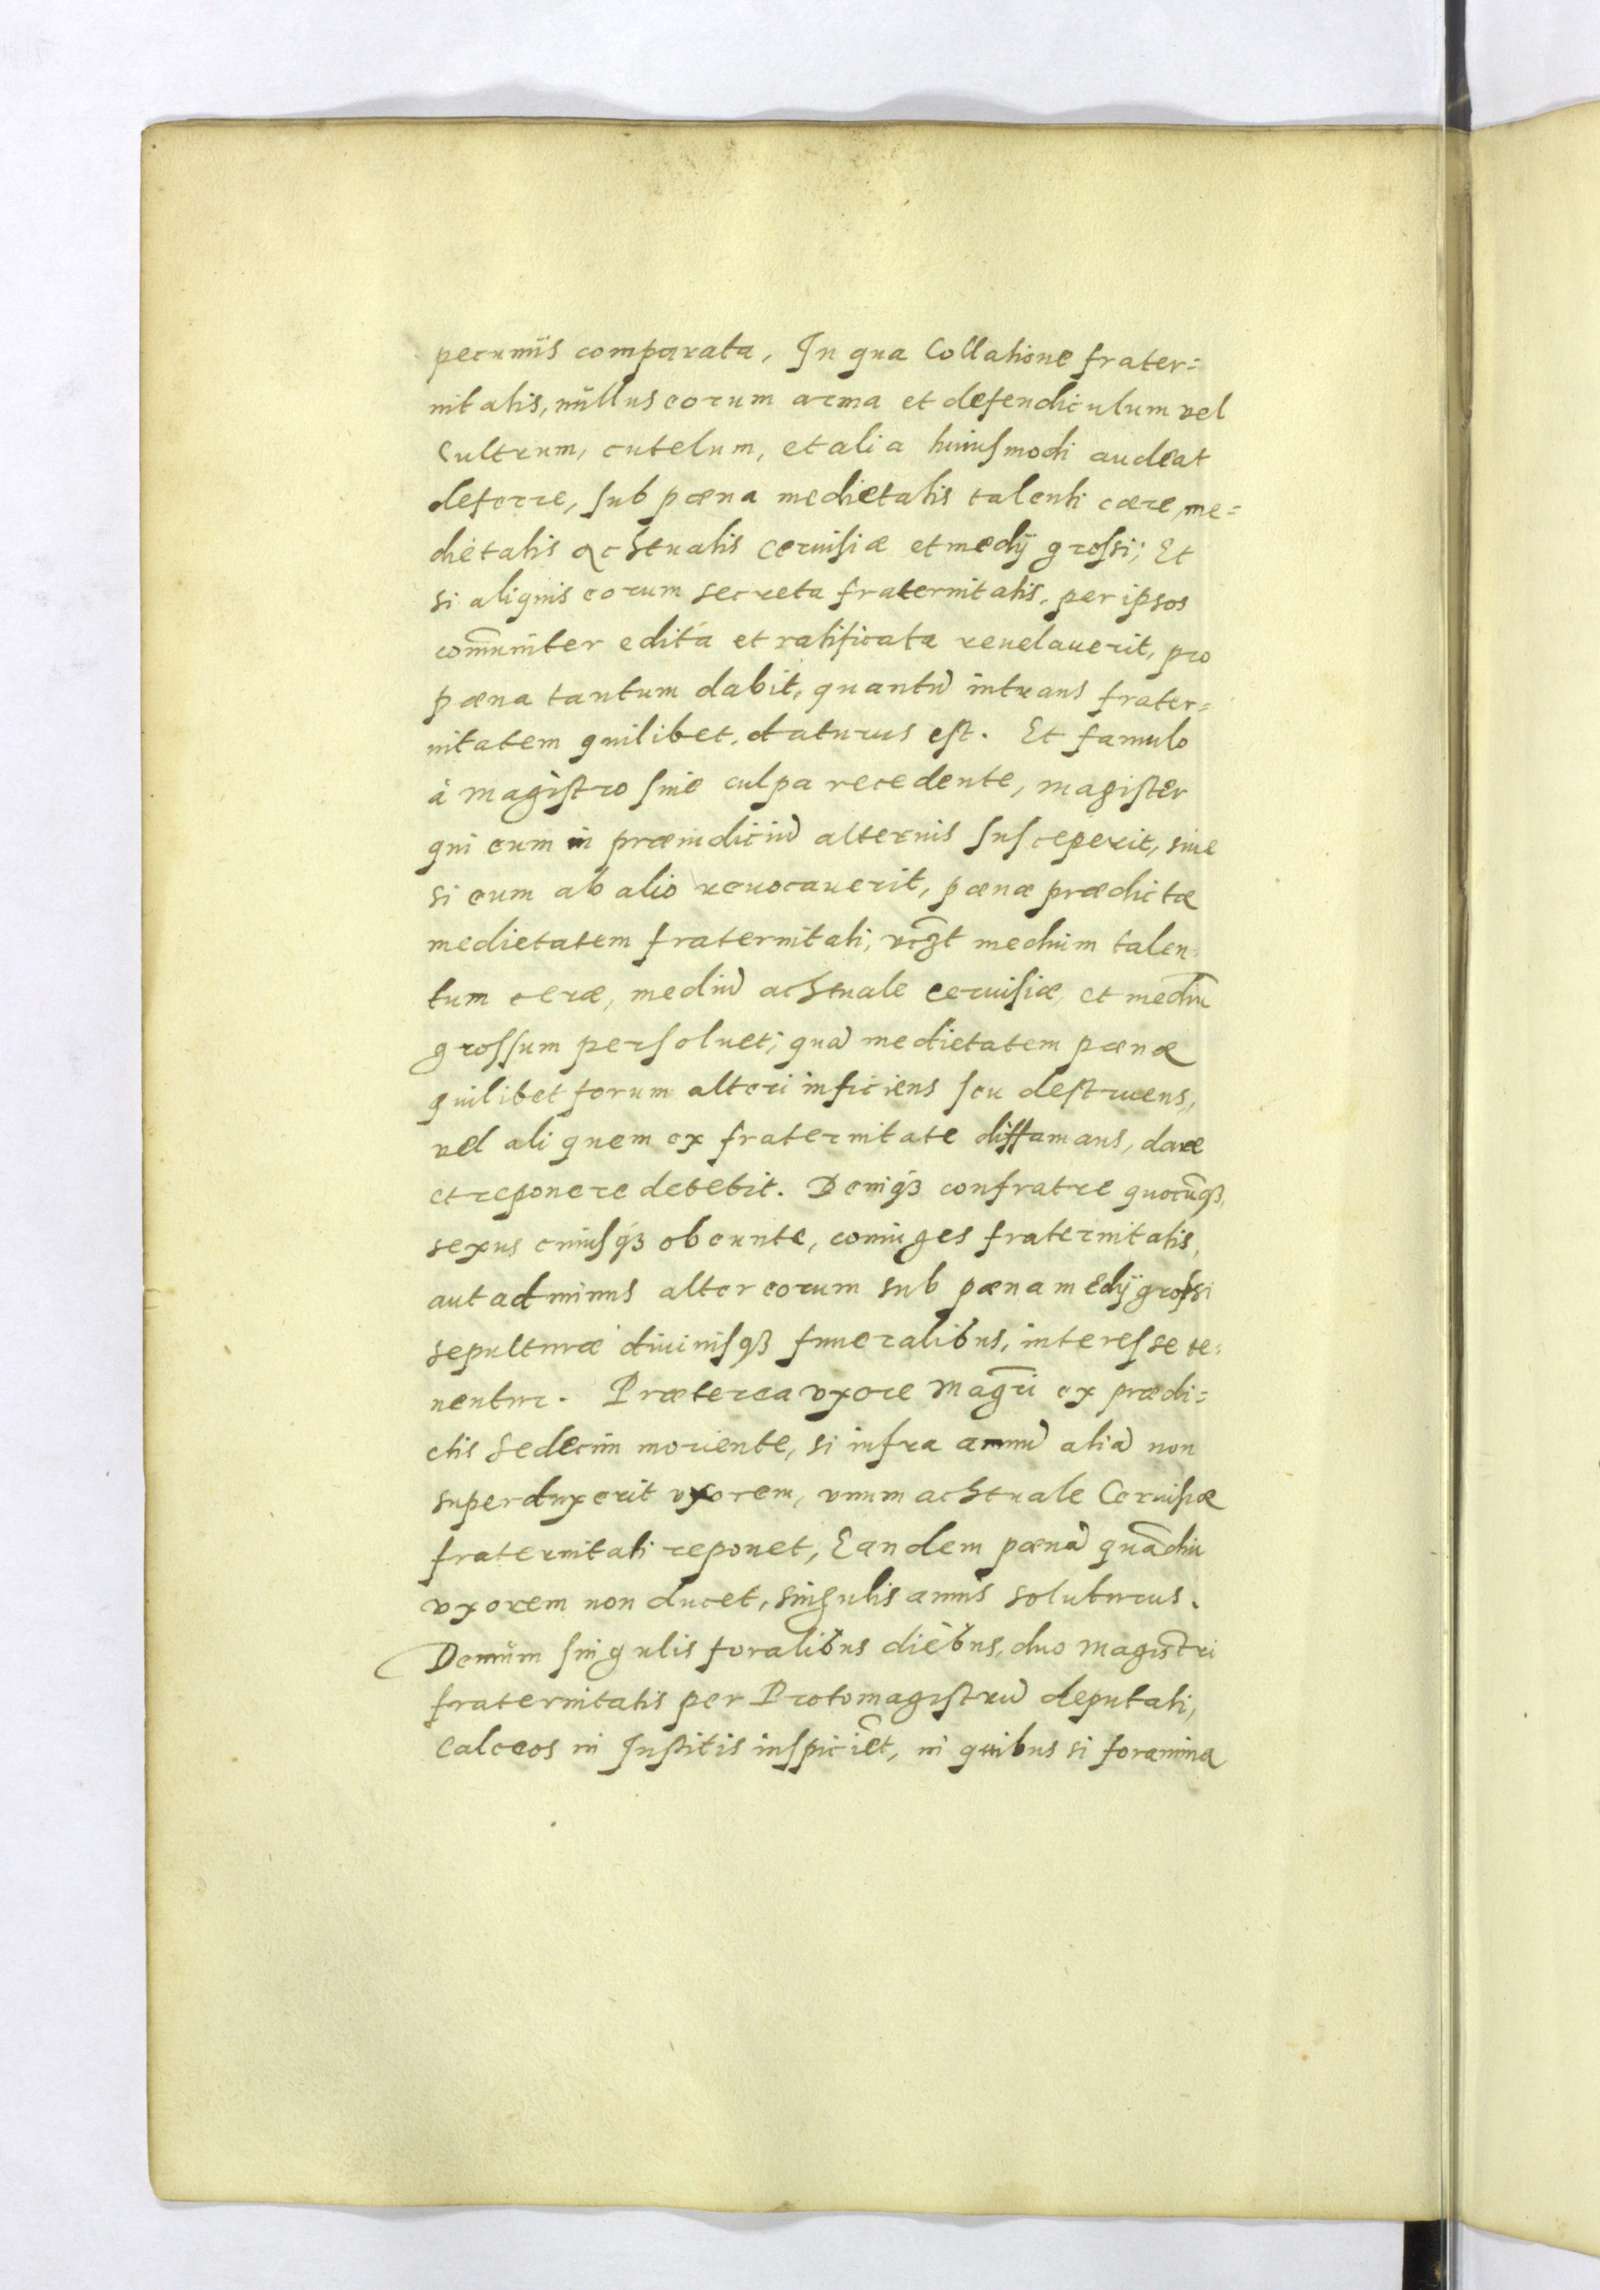 pecuniis comparata, In qua Collatione frater=
nitatis, nŭllus eorum arma et defendiculum vel
Cultrum, cutelum, et alia huiusmodi audeat
deferre, sub pœna medietatis talenti cæræ, me=
dietatis achtualis ceruisiæ et medÿ grossi; Et
si aliquis eorum secreta fraternitatis, per ipsos
com̄uniter edita et ratificata reuelauerit, pro
pœna tantum dabit, quantũ intrans frater=
nitatem quilibet daturus est. Et famulo
à magistro sine culpa recedente, magister
qui eum in præiudiciũ alterius susceperit, siue
si eum ab alio reuocauerit, pœnæ prædictæ
medietatem fraternitati, vc̃zt medium talen=
tum ceræ, mediũ achtuale ceruisiæ, et mediũ
grossum persoluet; quã medietatem pœnæ
quilibet forum alteri inficiens seu destruens,
vel aliquem ex fraternitate diffamans, dare
et reponere debebit. Deniqȝ confratre quocũqȝ,
sexus cuiusqȝ obeunte, coniuges fraternitatis,
aut ad minus alter eorum sub pœna medÿ grossi
sepulturæ diuinisqȝ funeralibus, interesse te=
nentur. Præterea vxore Magr̃i ex prædi=
ctis sedecim moriente, si infra annũ aliã non
superduxerit vxorem, vnum achtuale Ceruisiæ
fraternitati reponet, Eandem pœnã quãdiu
vxorem non ducet, singulis annis soluturus.
Demŭm singulis foralibus diebus, duo magistri
fraternitatis per Protomagistrũ deputati,
Calceos in Institis inspiciẽt, in quibus si foramina